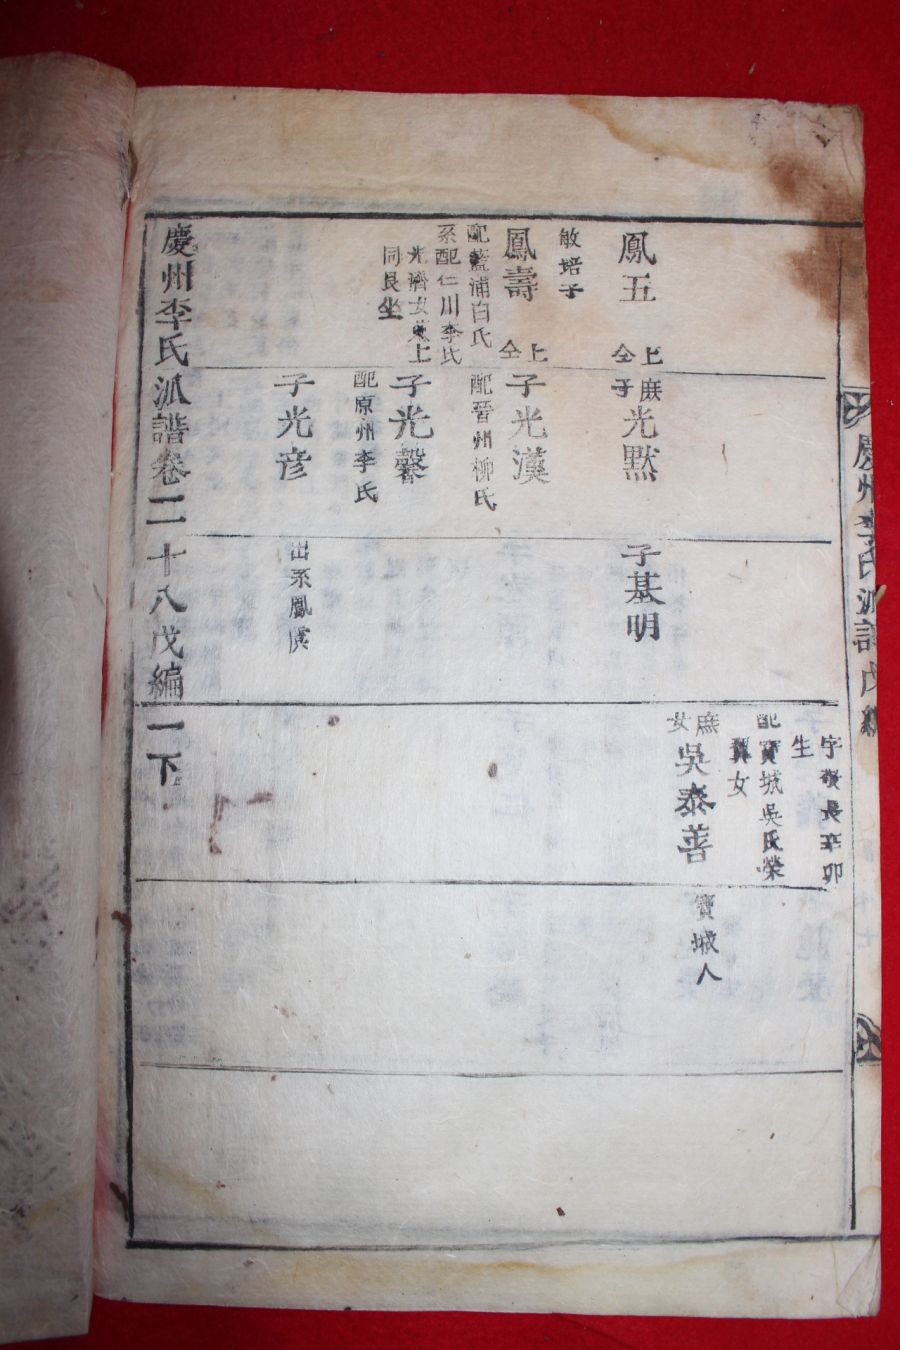 慶州李氏派譜戊編
鳳五
仝上
敏培子
鳳壽
仝上
配藍浦白氏
系配仁川李氏
光濟女墓上
同艮坐
庶子光默
子光漢
配晉州柳氏
子光馨
配原州李氏
子光彦
子基明
出系鳳
字敬長辛卯
生
配寶城吳氏榮
女
庶女吳泰善
寶城人
慶州李氏派譜卷二十八戊編一下